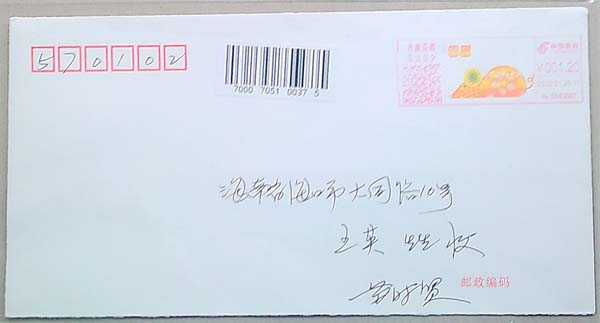 570102
7000 7051 0037 5
中国邮政
¥001.20
海南省海口市大同路10号
王英 先生 收
邮政编码